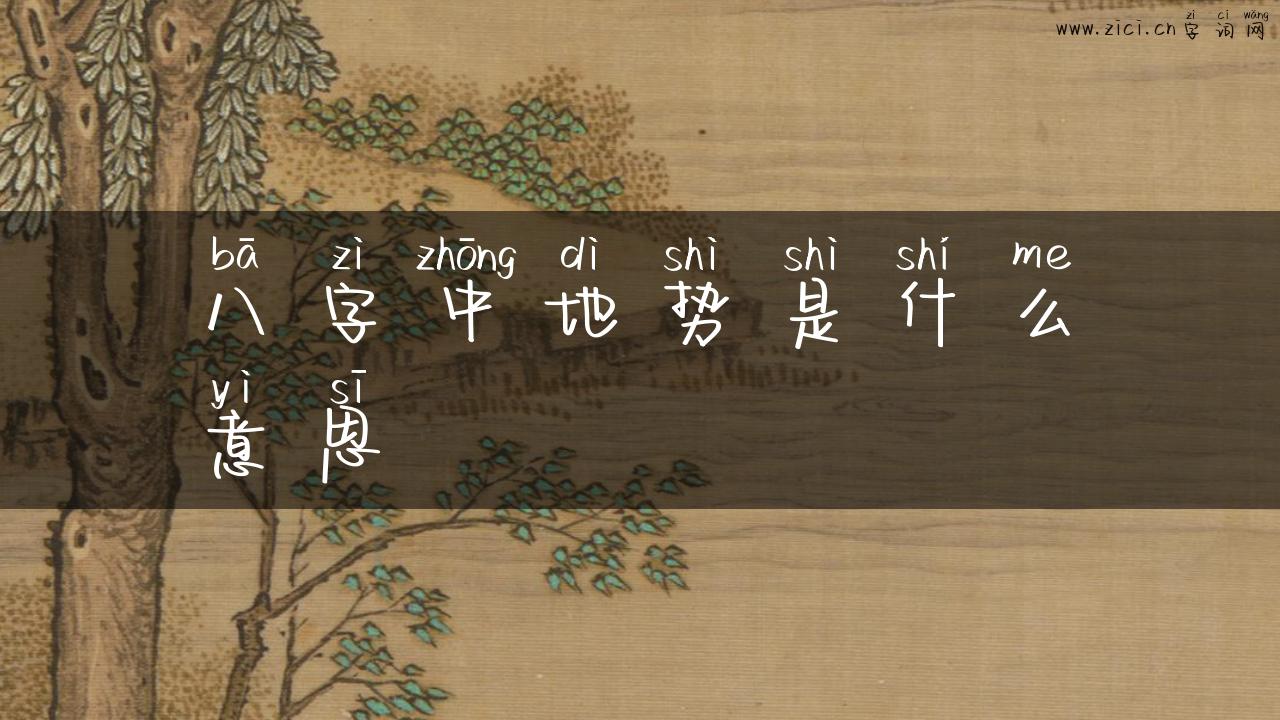 zì cí wǎng
www.zici.cn 字词网
bā zì zhōng dì shì shì shí me
八字中地势是什么
yì sī
意思